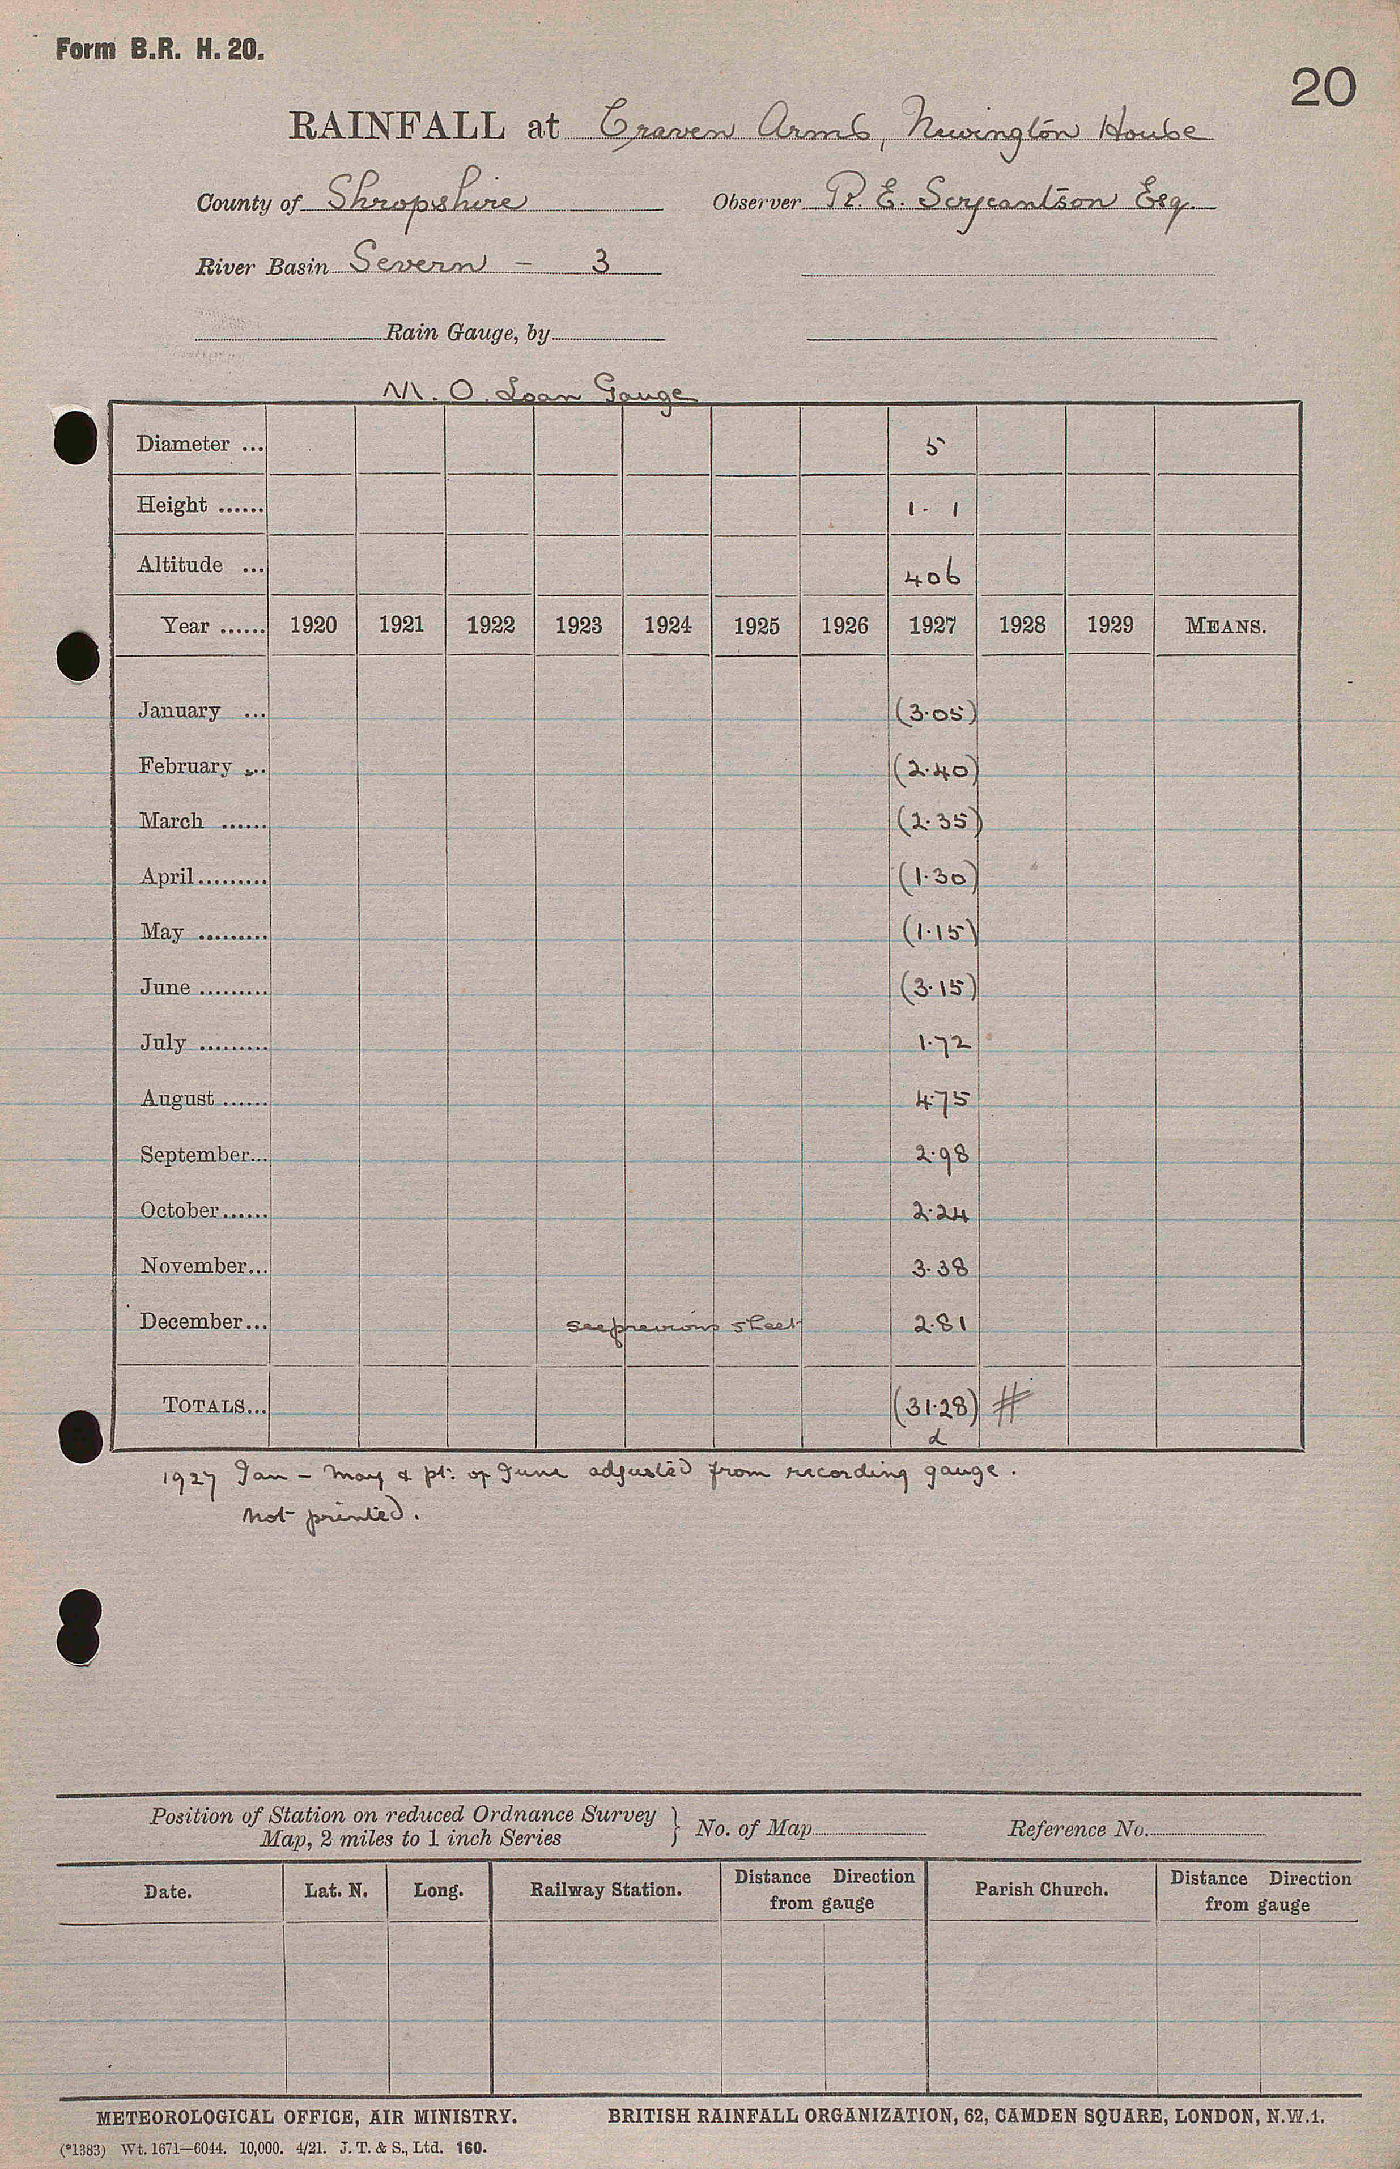 Form B.R. H. 20.
20
RAINFALL at Craven Arms, Newington House
County of Shropshire Observer R. E. Serjeantson Esq.
River Basin Severn - 3
Rain Gauge, by
M. O. Loan Gauge
Diameter ... 5
Height ...... 1 - 1
Altitude ... 406
Year ...... 1920 1921 1922 1923 1924 1925 1926 1927 1928 1929 MEANS.
January ... (3.05)
February ... (2.40)
March ...... (2.35)
April ......... (1.30)
May ......... (1.15)
June ......... (3.15)
July ......... 1.72
August ...... 4.75
September... 2.98
October...... 2.24
November... 3.38
December... see previous sheet 2.81
TOTALS... (31.28) #
d
1927 Jan - May & pt. of June adjusted from recording gauge.
not printed.
Position of Station on reduced Ordnance Survey
Map, 2 miles to 1 inch Series } No. of Map Reference No.
Date. Lat. N. Long. Railway Station. Distance Direction from gauge Parish Church. Distance Direction from gauge
METEOROLOGICAL OFFICE, AIR MINISTRY. BRITISH RAINFALL ORGANIZATION, 62, CAMDEN SQUARE, LONDON, N.W.1.
(*1383) Wt. 1671—6044. 10,000. 4/21. J. T. & S., Ltd. 160.